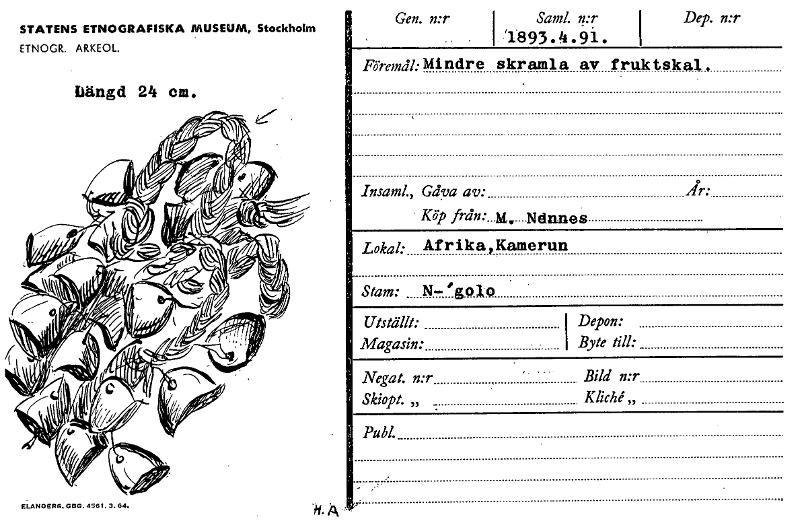 STATENS ETNOGRAFISKA MUSEUM, Stockholm
ETNOGR. ARKEOL.
Längd 24 cm.
ELANDERS. GBG. 4561. 3. 64.
H.A
Gen. n:r
Saml. n:r
Dep. n:r
1893.4.91.
Föremål: Mindre skramla av fruktskal.
Insaml., Gåva av: År:
Köp från: M. Nönnes
Lokal: Afrika,Kamerun
Stam: N-´golo
Utställt: Depon:
Magasin: Byte till:
Negat. n:r Bild n:r
Skiopt. „ Kliché „
Publ.